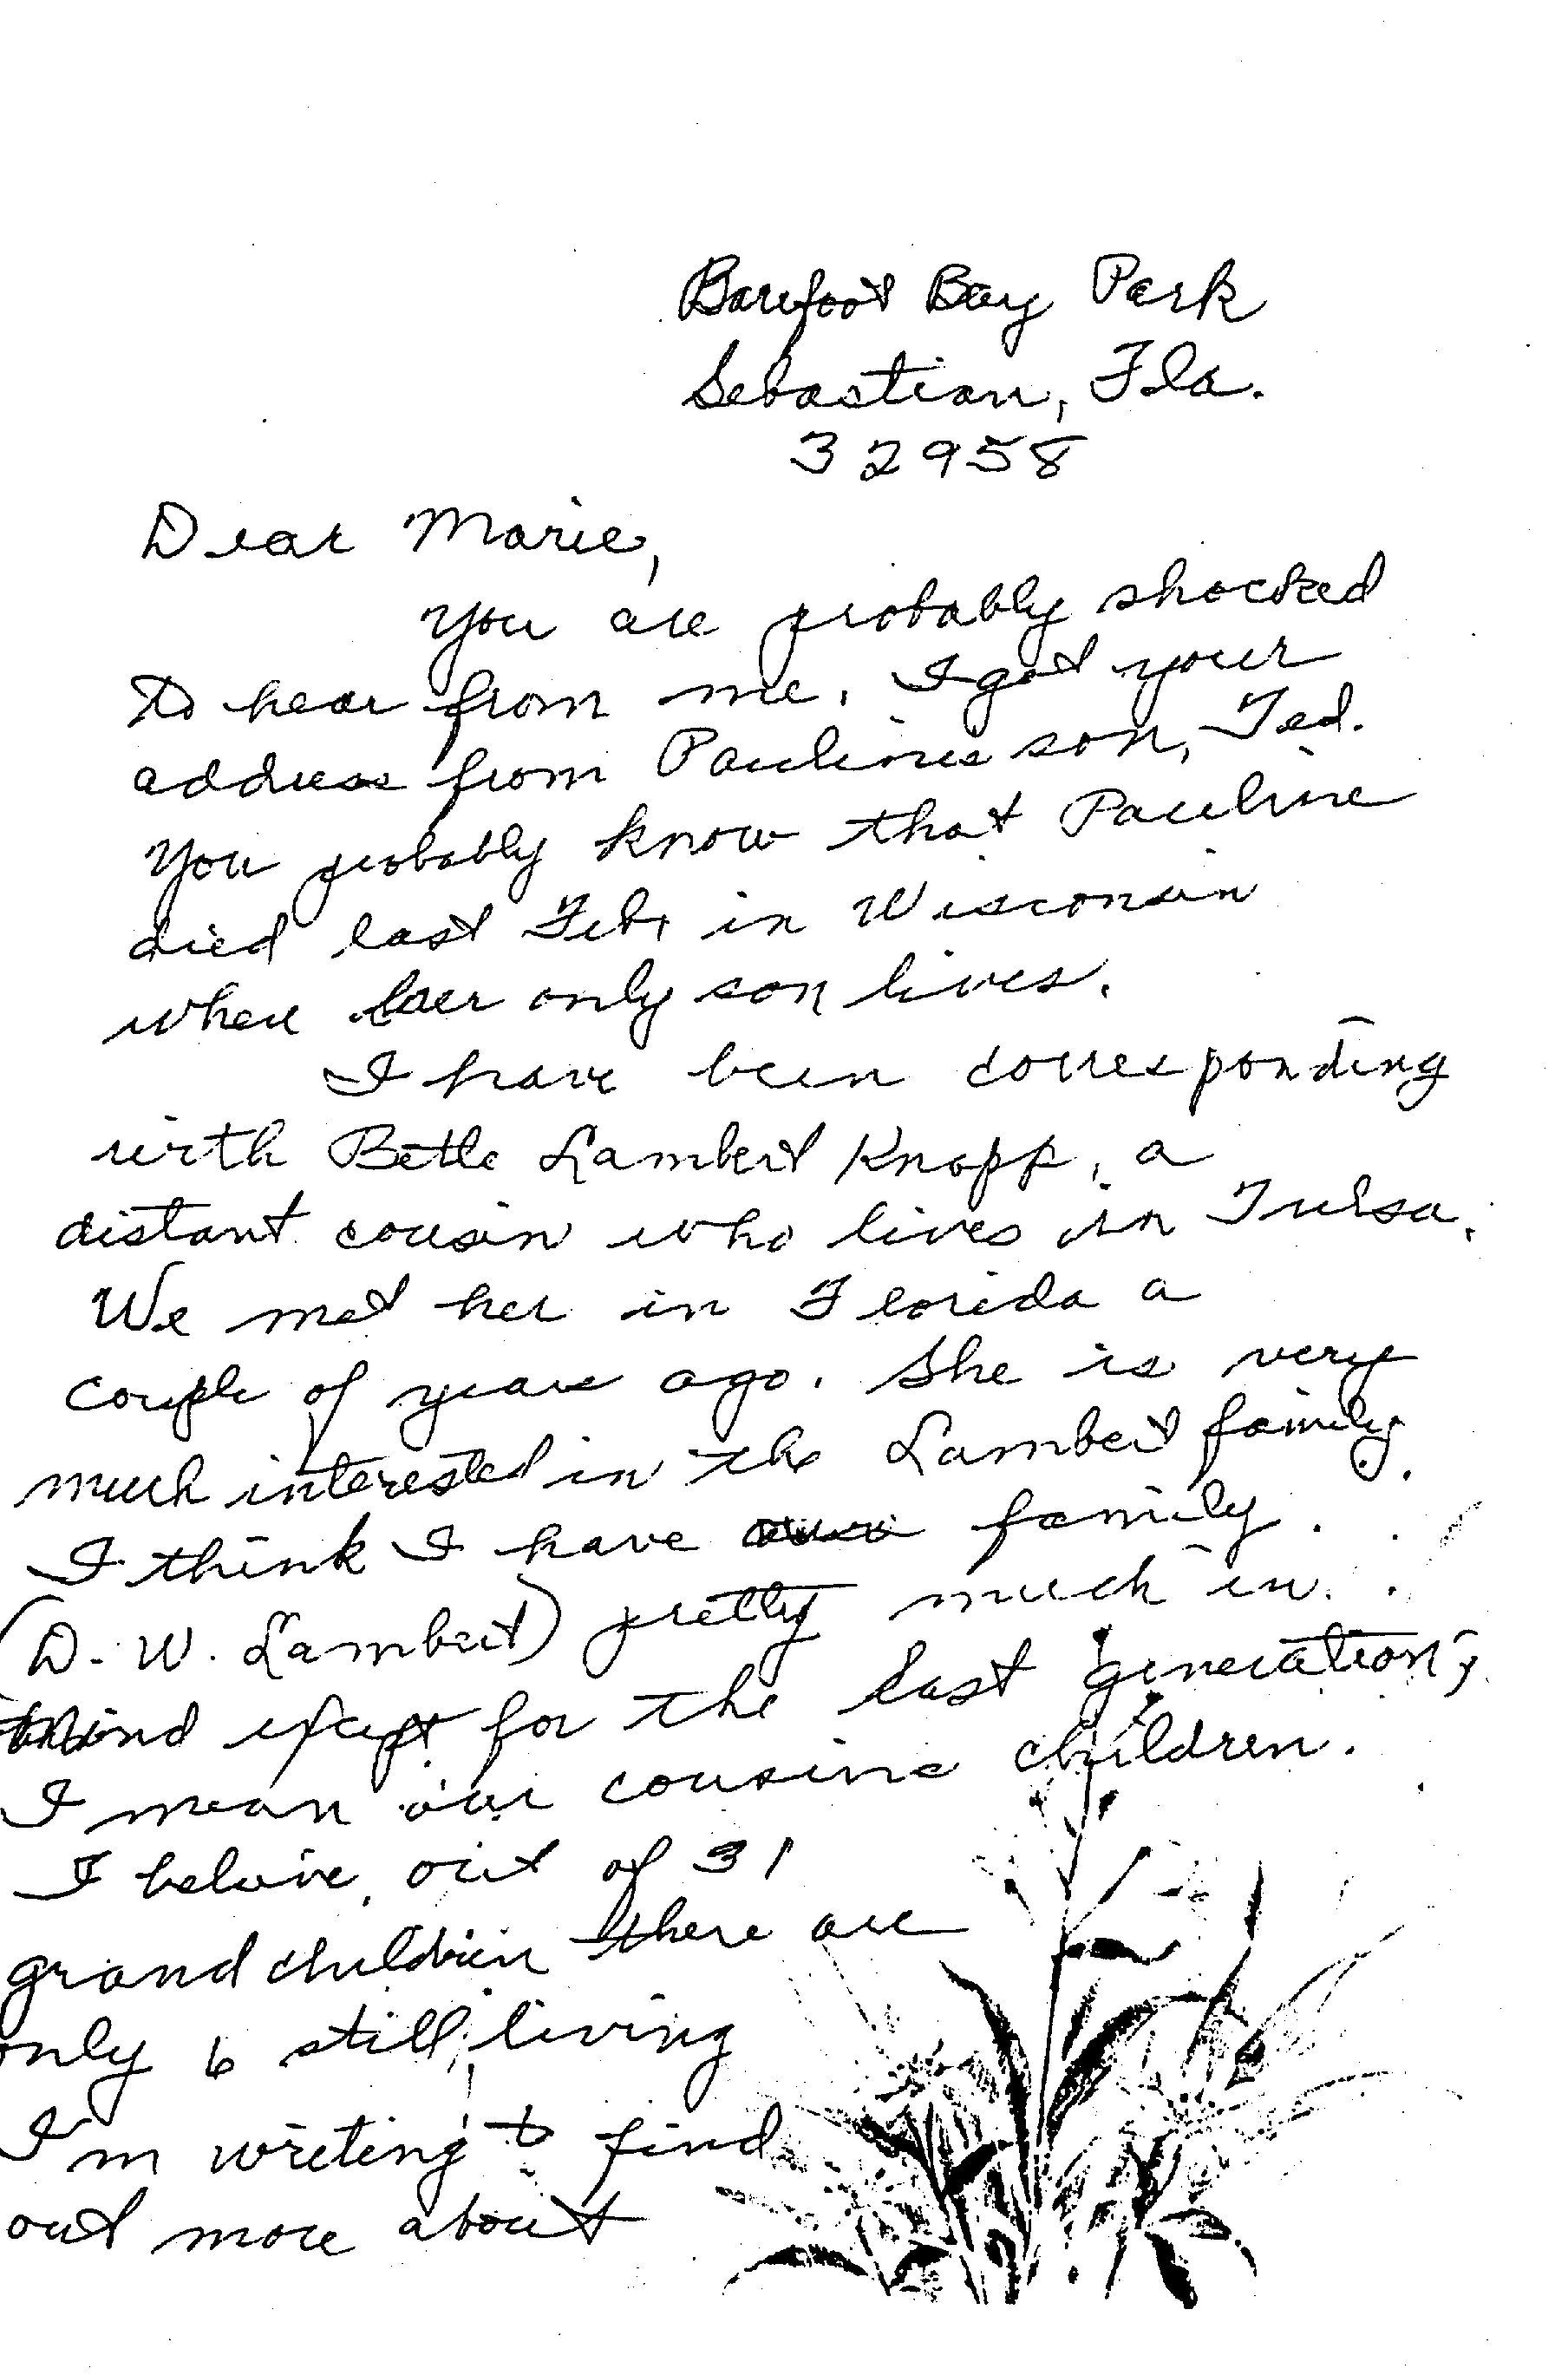 Barefoot Bay Park
Sebastian, Fla.
32958
Dear Marie,
You are probably shocked
to hear from me. I got your
address from Paulines son, Ted.
You probably know that Pauline
died last Feb. in Wisconsin
where her only son lives.
I have been corresponding
with Bette Lambert Knopp, a
distant cousin who lives in Tulsa.
We met her in Florida a
couple of years ago. She is very
much interested in the Lambert family.
I think I have our family
(D. W. Lambert) pretty much in
mind except for the last generation;
I mean our cousins children.
I beleive, out of 31
grandchildren there are
only 6 still living
I'm writing to find
out more about